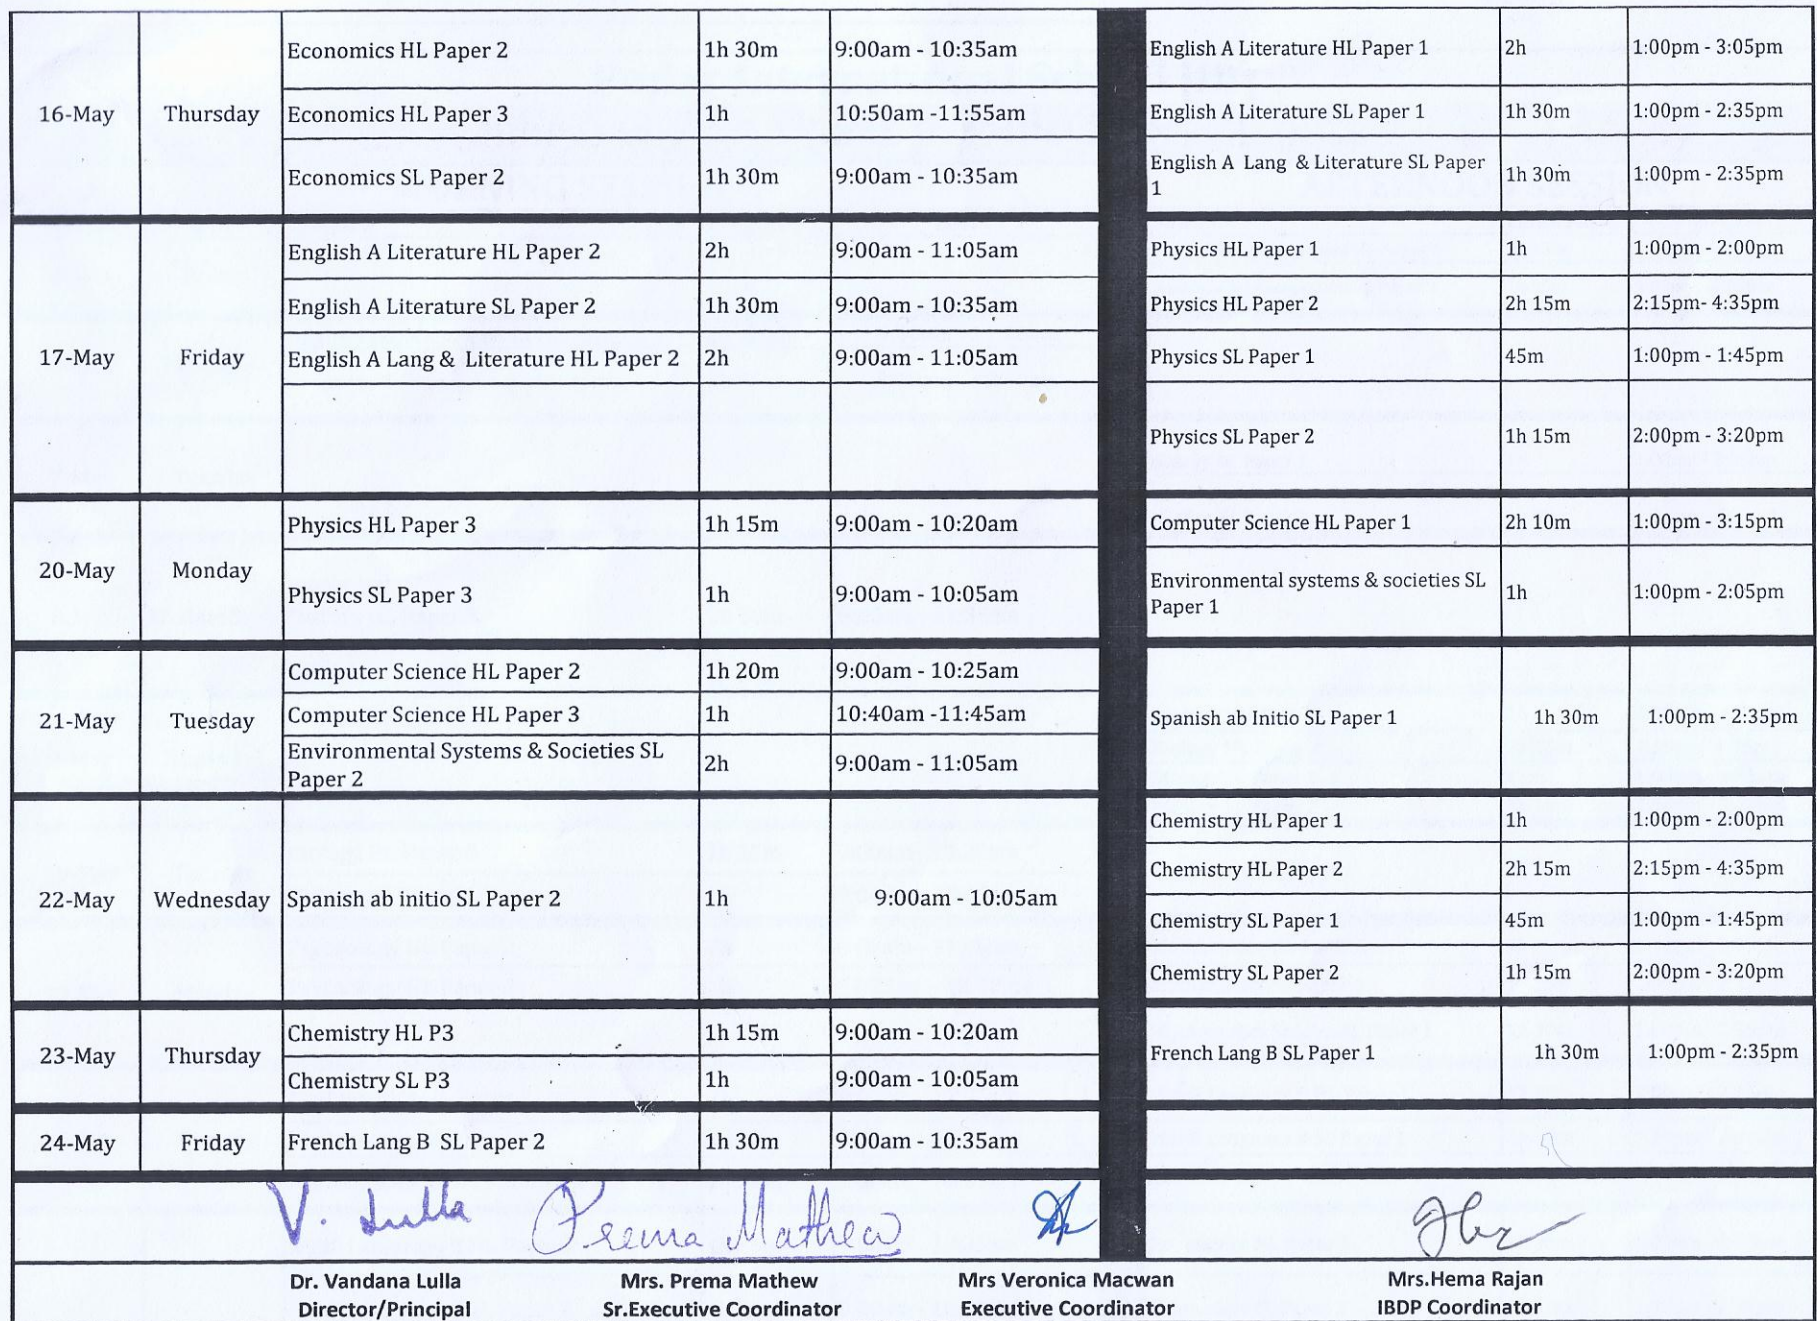 16-May Thursday Economics HL Paper 2 1h 30m 9:00am - 10:35am English A Literature HL Paper 1 2h 1:00pm - 3:05pm
Economics HL Paper 3 1h 10:50am -11:55am English A Literature SL Paper 1 1h 30m 1:00pm - 2:35pm
Economics SL Paper 2 1h 30m 9:00am - 10:35am English A Lang & Literature SL Paper 1 1h 30m 1:00pm - 2:35pm
17-May Friday English A Literature HL Paper 2 2h 9:00am - 11:05am Physics HL Paper 1 1h 1:00pm - 2:00pm
English A Literature SL Paper 2 1h 30m 9:00am - 10:35am Physics HL Paper 2 2h 15m 2:15pm- 4:35pm
English A Lang & Literature HL Paper 2 2h 9:00am - 11:05am Physics SL Paper 1 45m 1:00pm - 1:45pm
Physics SL Paper 2 1h 15m 2:00pm - 3:20pm
20-May Monday Physics HL Paper 3 1h 15m 9:00am - 10:20am Computer Science HL Paper 1 2h 10m 1:00pm - 3:15pm
Physics SL Paper 3 1h 9:00am - 10:05am Environmental systems & societies SL Paper 1 1h 1:00pm - 2:05pm
21-May Tuesday Computer Science HL Paper 2 1h 20m 9:00am - 10:25am Spanish ab Initio SL Paper 1 1h 30m 1:00pm - 2:35pm
Computer Science HL Paper 3 1h 10:40am -11:45am
Environmental Systems & Societies SL Paper 2 2h 9:00am - 11:05am
22-May Wednesday Spanish ab initio SL Paper 2 1h 9:00am - 10:05am Chemistry HL Paper 1 1h 1:00pm - 2:00pm
Chemistry HL Paper 2 2h 15m 2:15pm - 4:35pm
Chemistry SL Paper 1 45m 1:00pm - 1:45pm
Chemistry SL Paper 2 1h 15m 2:00pm - 3:20pm
23-May Thursday Chemistry HL P3 1h 15m 9:00am - 10:20am French Lang B SL Paper 1 1h 30m 1:00pm - 2:35pm
Chemistry SL P3 1h 9:00am - 10:05am
24-May Friday French Lang B SL Paper 2 1h 30m 9:00am - 10:35am
V. Lulla Prema Mathew
Dr. Vandana Lulla Mrs. Prema Mathew Mrs Veronica Macwan Mrs.Hema Rajan
Director/Principal Sr.Executive Coordinator Executive Coordinator IBDP Coordinator